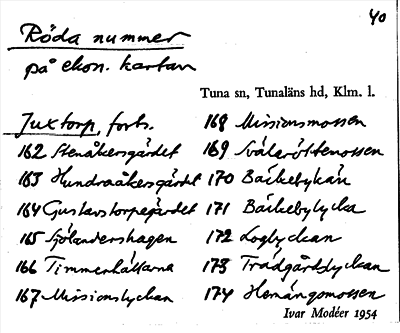 40
Röda nummer
på ekon. kartan
Tuna sn, Tunaläns hd, Klm. l.
Juxtorp, forts.
162 Stenåkersgärdet
163 Hundraåkersgärdet
164 Gustavstorpegärdet
165 Sjölandershagen
166 Timmerhällarna
167 Missionslyckan
168 Missionsmossen
169
170 Bäckebykärr
171 Bäckebylycka
172 Loglyckan
173 Trädgårdslyckan
174 Hemängsmossen
Ivar Modéer 1954